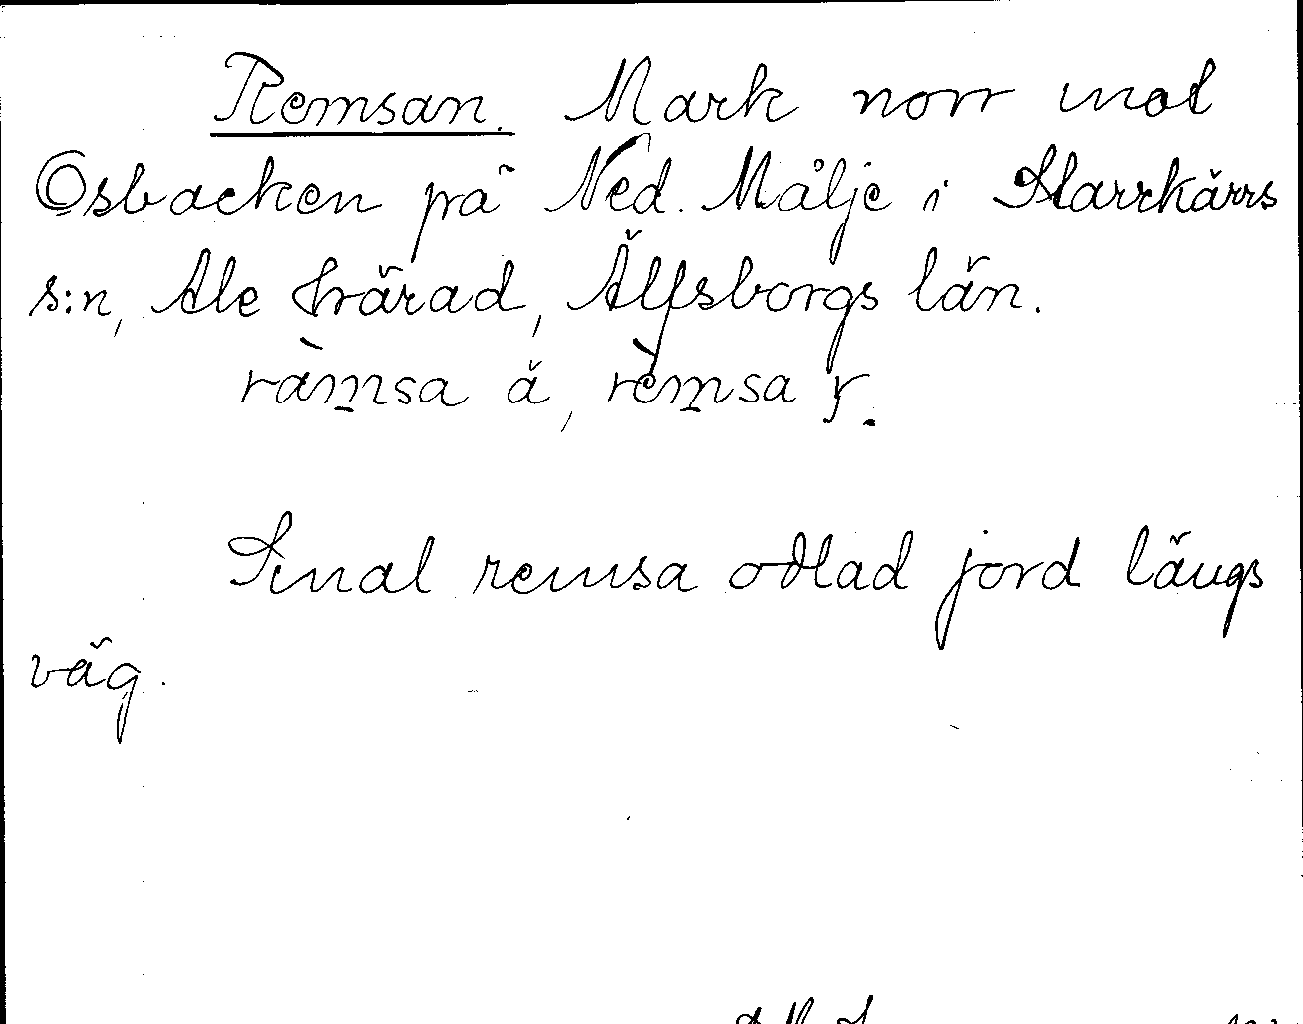 Remsan. Mark norr mot
Osbacken på Ned. Målje i Starrkärrs
s:n, Ale härad, Älfsborgs län.
ràmsa ä, rèmsa y.
Smal remsa odlad jord längs
väg.